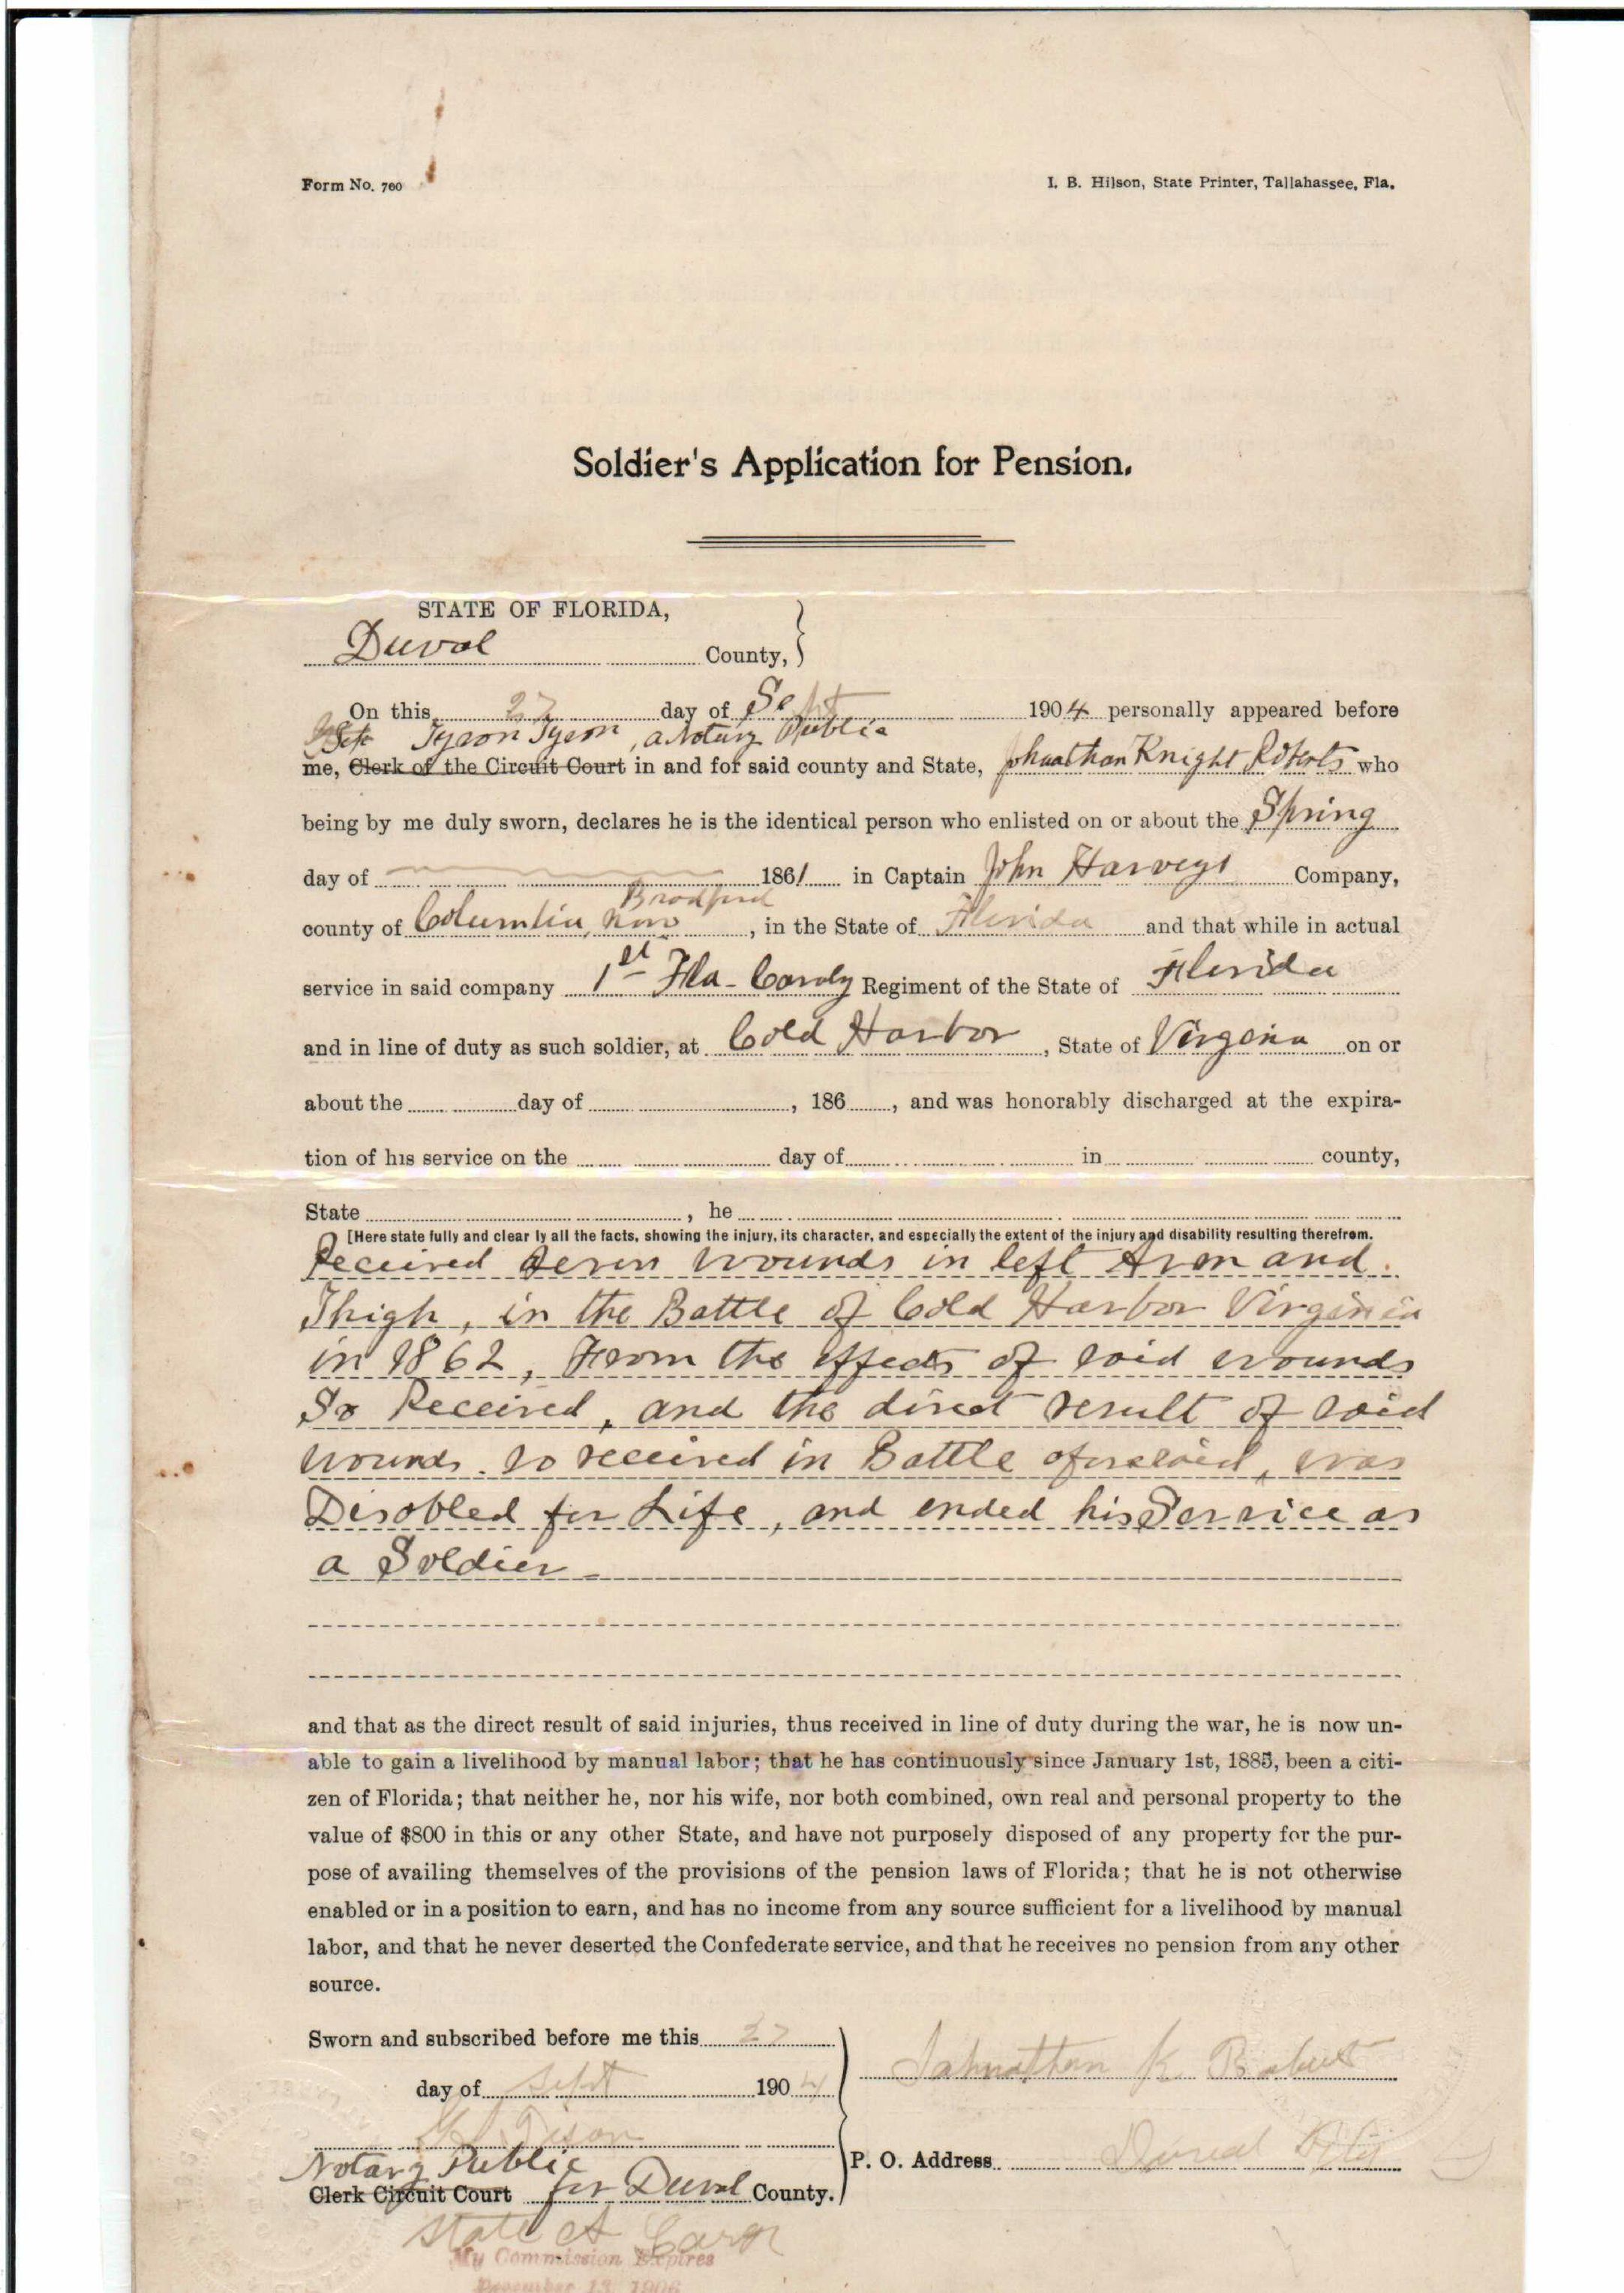 Form No. 760
I. B. Hilson, State Printer, Tallahassee, Fla.
Soldier's Application for Pension.
STATE OF FLORIDA,
Duval County,
On this 27 day of Sept 1904 personally appeared before
Tyson Tyson, a Notary Public
me, Clerk of the Circuit Court in and for said county and State, Johnathan Knight Roberts who
being by me duly sworn, declares he is the identical person who enlisted on or about the Spring
day of 1861 in Captain John Harveys Company,
Bradford
county of Columbia, now, in the State of Florida and that while in actual
service in said company 1st Fla- Cavaly Regiment of the State of Florida
and in line of duty as such soldier, at Cold Harbor, State of Virgenia on or
about the day of , 186 , and was honorably discharged at the expira-
tion of his service on the day of in county,
State , he
[Here state fully and clear ly all the facts, showing the injury, its character, and especially the extent of the injury and disability resulting therefrom.
Received seven wounds in left Arm and
Thigh, in the Battle of Cold Harbor Virginia
in 1862, From the effects of said wounds
So Received, and the direct result of said
wounds. so received in Battle aforesaid, was
Disabled for Life, and ended his Service as
a Soldier -
and that as the direct result of said injuries, thus received in line of duty during the war, he is now un-
able to gain a livelihood by manual labor; that he has continuously since January 1st, 1885, been a citi-
zen of Florida; that neither he, nor his wife, nor both combined, own real and personal property to the
value of $800 in this or any other State, and have not purposely disposed of any property for the pur-
pose of availing themselves of the provisions of the pension laws of Florida; that he is not otherwise
enabled or in a position to earn, and has no income from any source sufficient for a livelihood by manual
labor, and that he never deserted the Confederate service, and that he receives no pension from any other
source.
Sworn and subscribed before me this 27
day of Sept 1904
Johnathan K. Roberts
Notary Public
P. O. Address Duval
Clerk Circuit Court for Duval County.
State
My Commission Expires
December 13, 1906